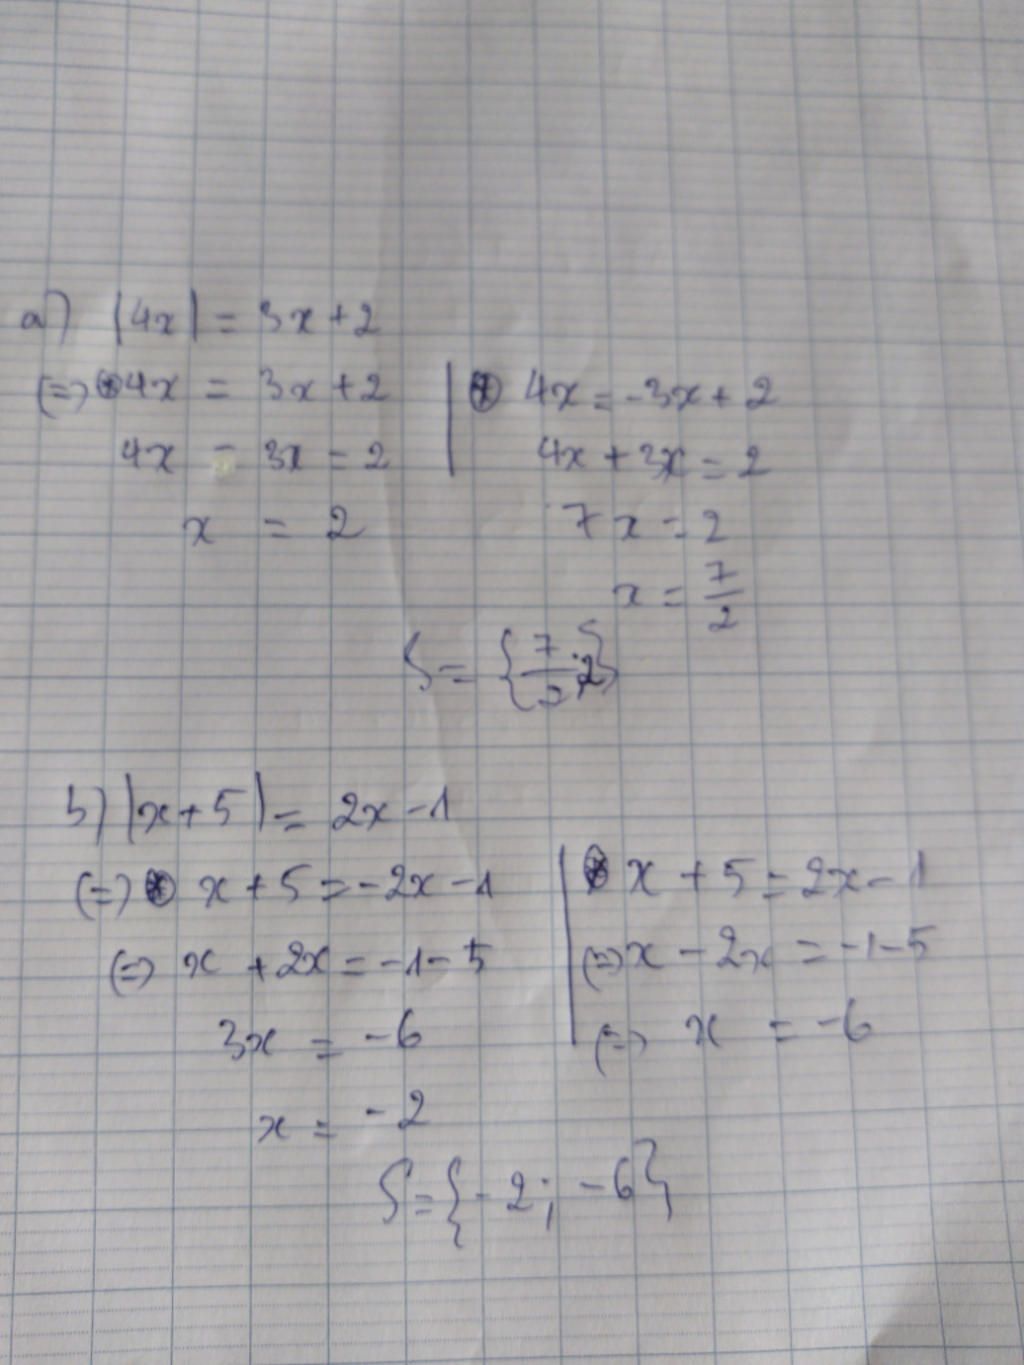 a) |4x| = 3x+2
(=) * 4x = 3x+2 | * 4x = -3x+2
4x = 3x = 2 | 4x + 3x = 2
x = 2 7x = 2
x = 7/2
S = {7/2; 2}
b) |x+5| = 2x-1
(=) * x+5 = -2x-1 | * x+5 = 2x-1
(=) x+2x = -1-5 | (=) x-2x = -1-5
3x = -6 | (=) x = -6
x = -2
S = {-2; -6}